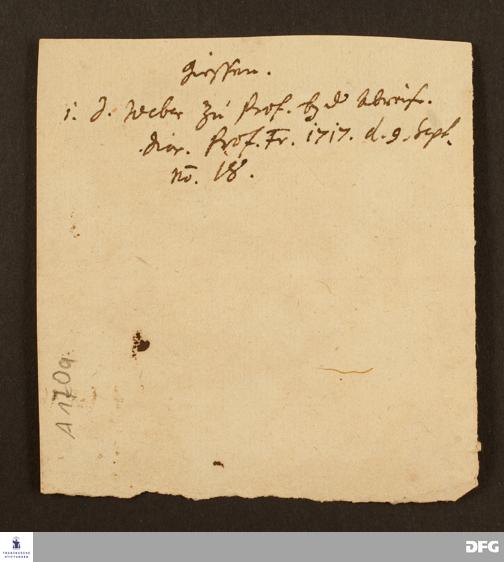 Giessen.
1. D. Weber zu Prof. bey d. Abreise.
Diar. Prof. Fr. 1717. d. 9. Sept.
No. 18.
A 170a
FRANCKESCHE
STIFTUNGEN
DFG